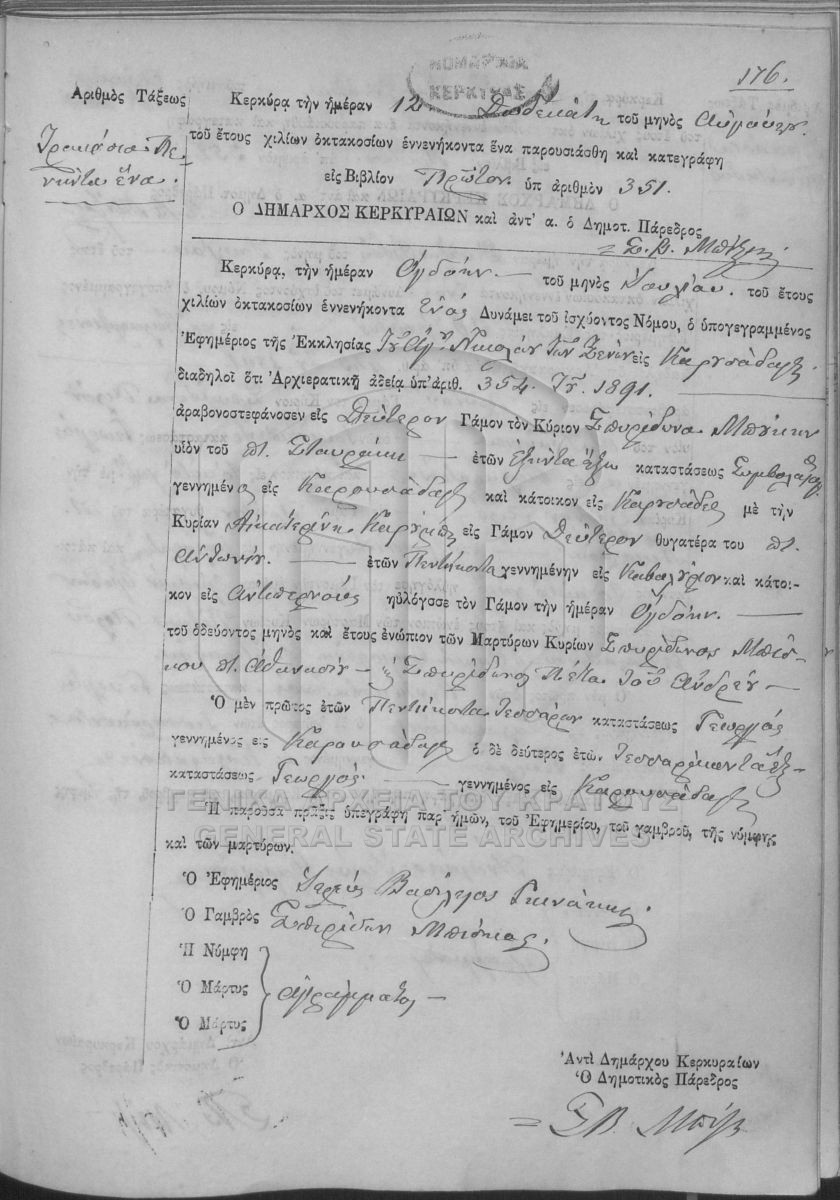 ΝΟΜΑΡΧΙΑ
ΚΕΡΚΥΡΑΣ
176.
Ἀριθμὸς Τάξεως
Τριακόσια Πε-
νῆντα ἕνα.
Κερκύρᾳ τὴν ἡμέραν 12 Δωδεκάτη τοῦ μηνὸς Αὐγούστου
τοῦ ἔτους χιλίων ὀκτακοσίων ἐννενήκοντα ἕνα παρουσιάσθη καὶ κατεγράφη
εἰς Βιβλίον Πρῶτον ὑπ ἀριθμὸν 351.
Ο ΔΗΜΑΡΧΟΣ ΚΕΡΚΥΡΑΙΩΝ καὶ ἀντ' α. ὁ Δημοτ. Πάρεδρος
Κερκύρᾳ, τὴν ἡμέραν Ὀγδόην — τοῦ μηνὸς Ἰουλίου. τοῦ ἔτους
χιλίων ὀκτακοσίων ἐννενήκοντα ἑνὸς Δυνάμει τοῦ ἰσχύοντος Νόμου, ὁ ὑπογεγραμμένος
Ἐφημέριος τῆς Ἐκκλησίας Τοῦ Ἁγ. Νικολάου τῶν Ξένων εἰς Καρυσάδας
διαδηλοῖ ὅτι Ἀρχιερατικῇ ἀδείᾳ ὑπ' ἀριθ. 354. 1891.
ἀραβονοστεφάνοσεν εἰς Δεύτερον Γάμον τὸν Κύριον Σπυρίδωνα
υἱὸν τοῦ π. Σταυράκη — ἐτῶν ἑξῆντα ἕξω καταστάσεως
γεννημένος εἰς Καρουσάδας καὶ κάτοικον εἰς Καρυσάδες μὲ τὴν
Κυρίαν Αἰκατερίνη εἰς Γάμον Δεύτερον θυγατέρα του π.
Ἀντωνίου. — ἐτῶν Πεντήκοντα γεννημένην εἰς καὶ κάτοι-
κον εἰς Ἀντιπερνοὺς ηὐλόγσσε τὸν Γάμον τὴν ἡμέραν Ὀγδόην. —
τοῦ ὁδεύοντος μηνὸς καὶ ἔτους ἐνώπιον τῶν Μαρτύρων Κυρίων Σπυρίδωνος Μπίσ-
κου π. Ἀθανασίου — Σπυρίδωνος Πέκα τοῦ Ἀνδρέου —
Ὁ μὲν πρῶτος ἐτῶν Πεντήκοντα τεσσάρων καταστάσεως Γεωργὸς
γεννημένος εἰς Καρουσάδας ὁ δὲ δεύτερος ἐτῶ. Τεσσαράκοντα ἕξ —
καταστάσεως Γεωργὸς — γεννημένος εἰς Καρουσάδας
ΓΕΝΙΚΑ ΑΡΧΕΙΑ ΤΟΥ ΚΡΑΤΟΥΣ
GENERAL STATE ARCHIVES
Ἡ παροῦσα πρᾶξις ὑπεγράφη παρ' ἡμῶν, τοῦ Ἐφημερίου, τοῦ γαμβροῦ, τῆς νύμφης
καὶ τῶν μαρτύρων.
Ὁ Ἐφημέριος Ἱερεὺς Βασίλειος
Ὁ Γαμβρὸς Σπιρίδων Μπίσκας.
Ἡ Νύμφη
Ὁ Μάρτυς ἀγράμματοι —
Ὁ Μάρτυς
Ἀντὶ Δημάρχου Κερκυραίων
Ὁ Δημοτικὸς Πάρεδρος